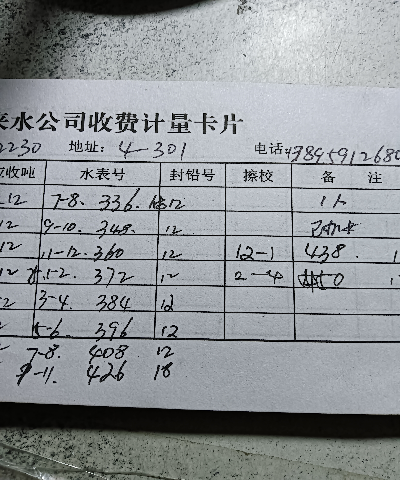 来水公司收费计量卡片
2230 地址: 4-301 电话: 13895912680
应收吨 水表号 封铅号 擦校 备 注
12 7-8. 336. 12 1人
12 9-10. 348. 12 已办卡
12 11-12. 360 12 12-1 438.
12 1-2. 372 12 2-4 450
2 3-4. 384 12
2 5-6 396 12
7-8. 408 12
9-11. 426 18